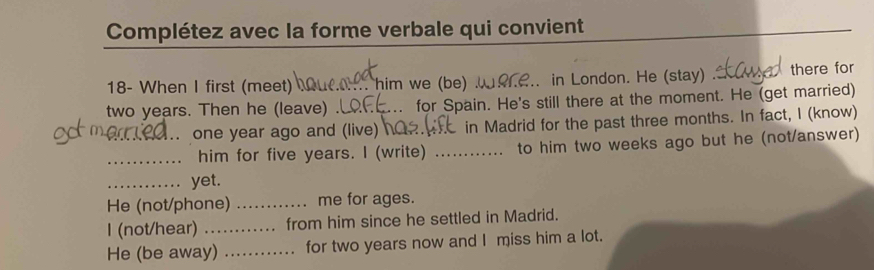 Complétez avec la forme verbale qui convient
18- When I first (meet) have meet him we (be) were in London. He (stay) stayed there for
two years. Then he (leave) left for Spain. He's still there at the moment. He (get married)
got married one year ago and (live) has lift in Madrid for the past three months. In fact, I (know)
............ him for five years. I (write) ............ to him two weeks ago but he (not/answer)
............ yet.
He (not/phone) ............ me for ages.
I (not/hear) ............ from him since he settled in Madrid.
He (be away) ............ for two years now and I miss him a lot.